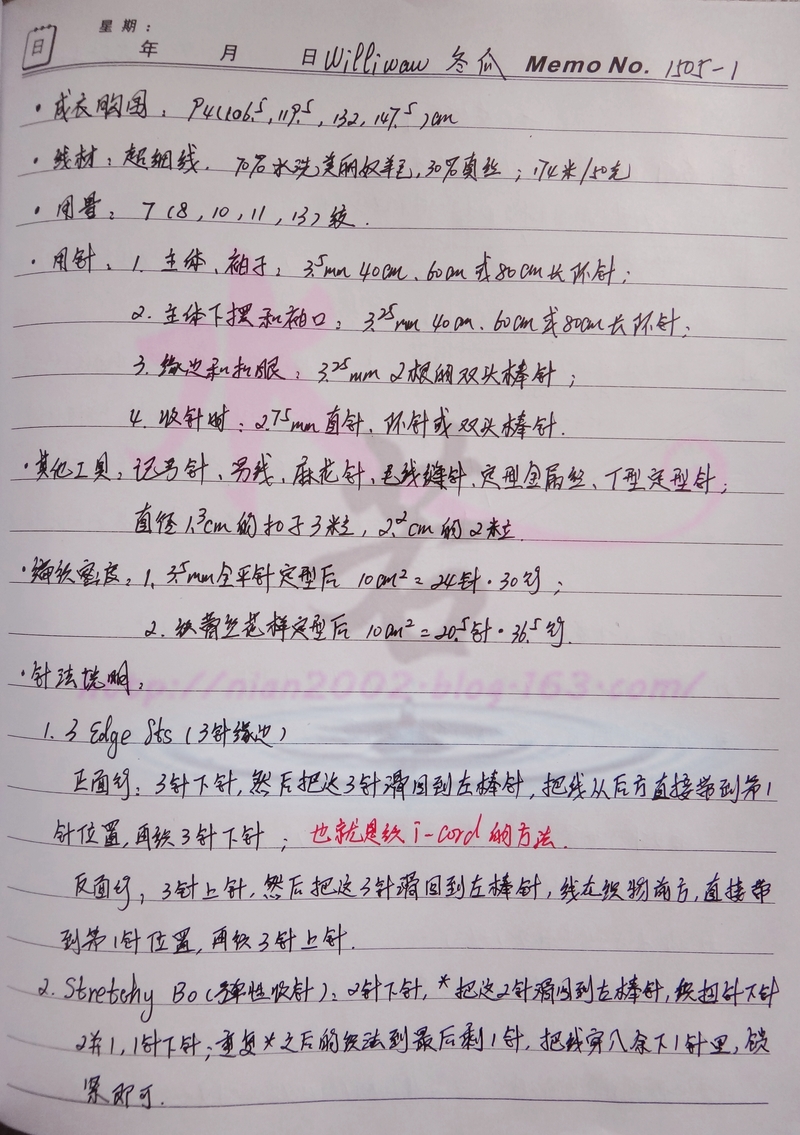 日 星期：
年 月 日 Williwaw 冬瓜 Memo No. 1505-1
·成衣胸围：94(106.5, 119.5, 132, 147.5)cm
·线材：超细线，70%水洗美丽奴羊毛，30%真丝；174米/50克
·用量：7(8, 10, 11, 13)绞.
·用针：1. 主体、袖子：3.5mm 40cm、60cm或80cm长环针；
2. 主体下摆和袖口：3.25mm 40cm、60cm或80cm长环针；
3. 缘边和扣眼：3.25mm 2根的双头棒针；
4. 收针时：2.75mm直针、环针或双头棒针.
·其他工具：记号针、另线、麻花针、毛线缝针、定型金属丝、T型定型针；
直径1.3cm的扣子3粒，2.2cm的2粒.
·编织密度：1. 3.5mm全平针定型后 10cm²=24针·30行；
2. 织蕾丝花样定型后 10cm²=20.5针·36.5行.
·针法说明：
http://nian2002.blog.163.com/
1. 3 Edge Sts (3针缘边)
正面行：3针下针，然后把这3针滑回到左棒针，把线从后方直接带到第1
针位置，再织3针下针；也就是织i-cord的方法.
反面行：3针上针，然后把这3针滑回到左棒针，线在织物前方，直接带
到第1针位置，再织3针上针.
2. Stretchy Bo (弹性收针)：2针下针，*把这2针滑回到左棒针，织扭针下针
2并1，1针下针；重复*之后的织法到最后剩1针，把线穿入余下1针里，锁
紧即可.